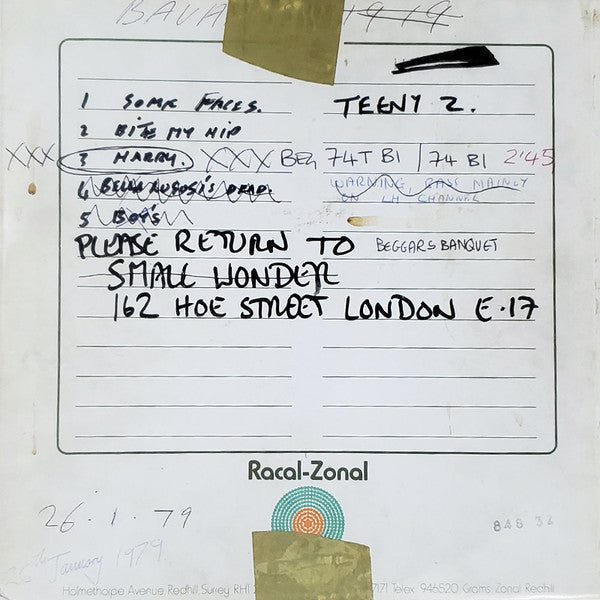 BAVA 1919
1 SOME FACES. TEENY 2.
2 BITE MY HIP
XXX 3 HARRY. XXX BEG 74T B1 / 74 B1 2'45
4 BELA LUGOSI'S DEAD. WARNING, BASS MAINLY
ON LH CHANNEL
5 BOYS
PLEASE RETURN TO BEGGARS BANQUET
SMALL WONDER
162 HOE STREET LONDON E.17
Racal-Zonal
26.1.79
848 32
26th January 1979
Holmethorpe Avenue, Redhill, Surrey RH1 7171 Telex 946520 Grams: Zonal Redhill